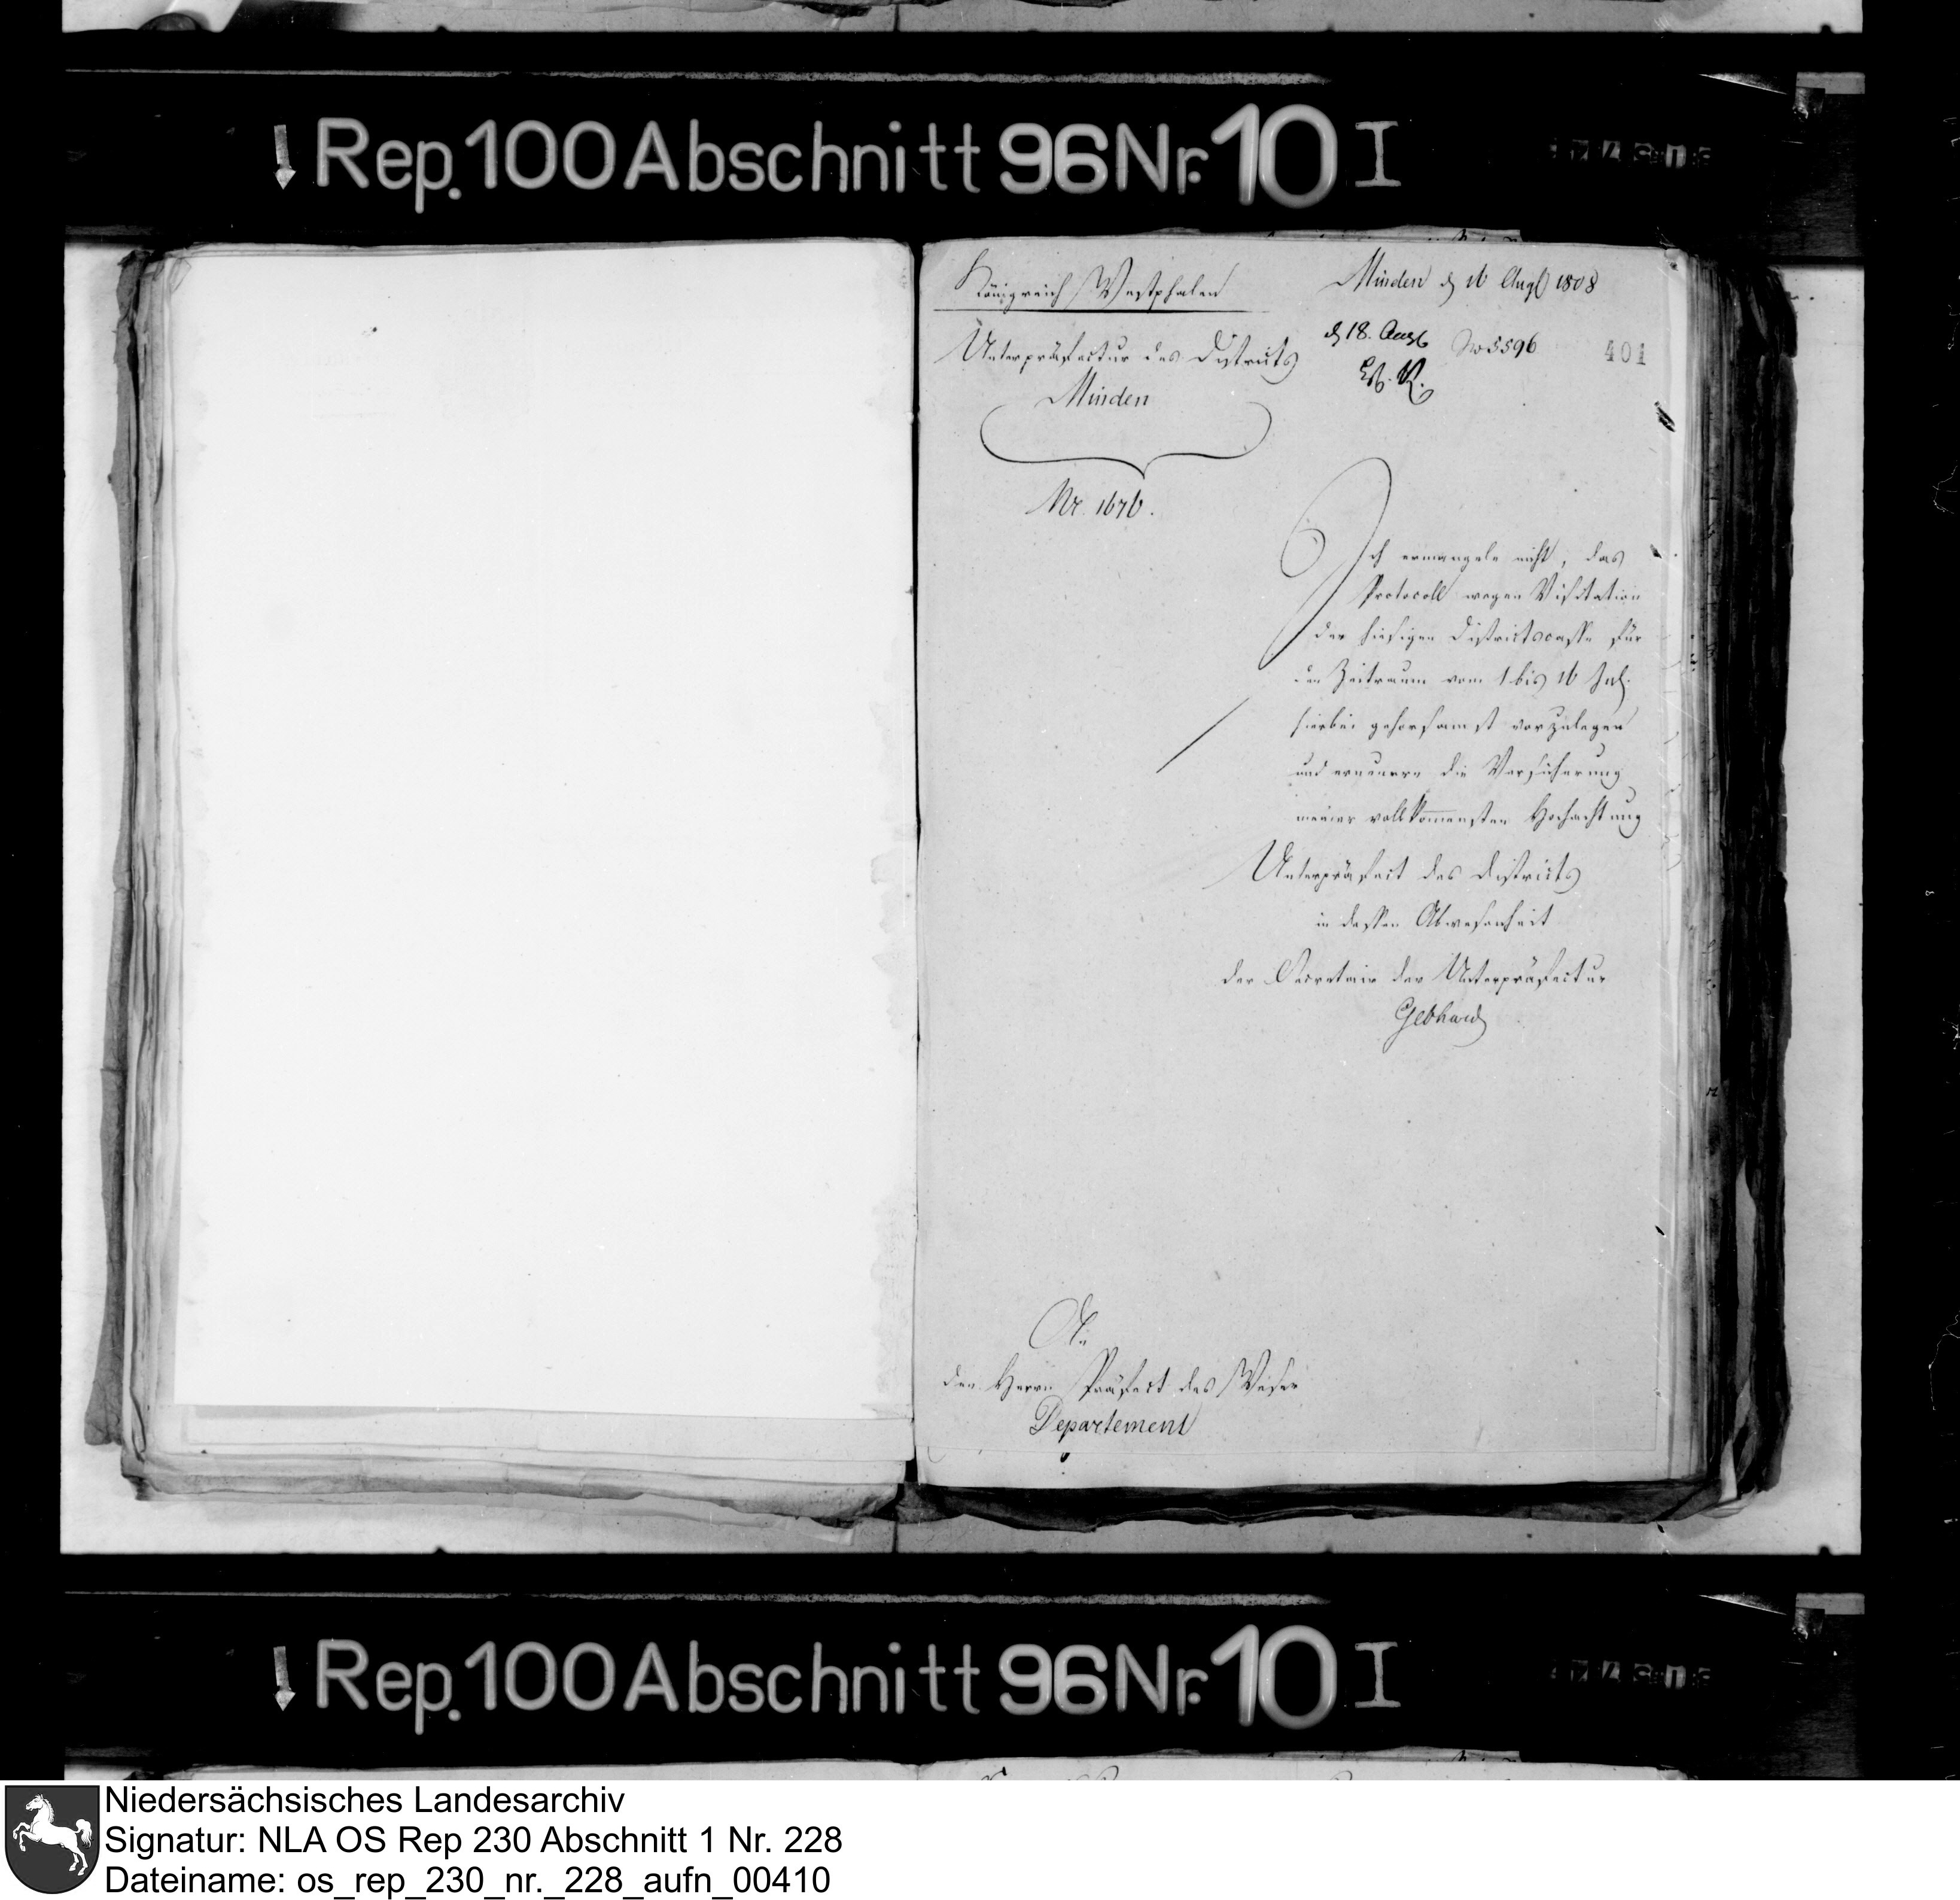 Rep. 100 Abschnitt 96 Nr. 10 I
Königreich Westphalen
Minden d 16 Augt 1808
Unterpräfectur des Districts
Minden
d 18. Aug
No 5596
401
Nr. 1676.
Ich ermangele nicht, das
Protocoll wegen Visitation
der hiesigen Districtscasse für
den Zeitraum vom 1 bis 16 Jul.
hierbei gehorsamst vorzulegen
und erneuere die Versicherung
meiner vollkomensten Hochachtung
Unterpräfect des Districts
in dessen Abwesenheit
der Secretair der Unterpräfectur
Gebhard
An
den Herrn Präfect des Weser
Departement
Rep. 100 Abschnitt 96 Nr. 10 I
Niedersächsisches Landesarchiv
Signatur: NLA OS Rep 230 Abschnitt 1 Nr. 228
Dateiname: os_rep_230_nr._228_aufn_00410